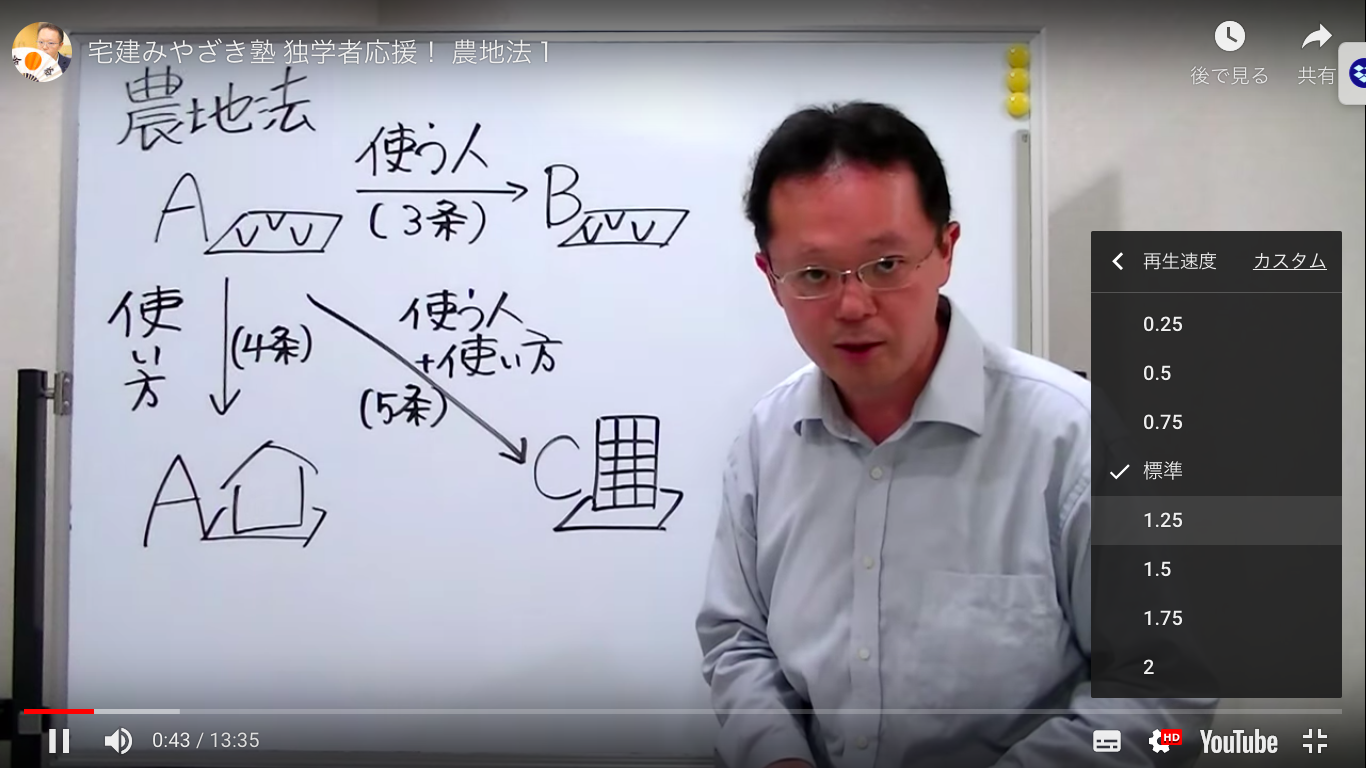 宅建みやざき塾 独学者応援！ 農地法１
後で見る
共有
農地法
使う人
A
(3条)
B
使い方
(4条)
使う人
+使い方
(5条)
A
C
再生速度
カスタム
0.25
0.5
0.75
標準
1.25
1.5
1.75
2
0:43 / 13:35
HD
YouTube